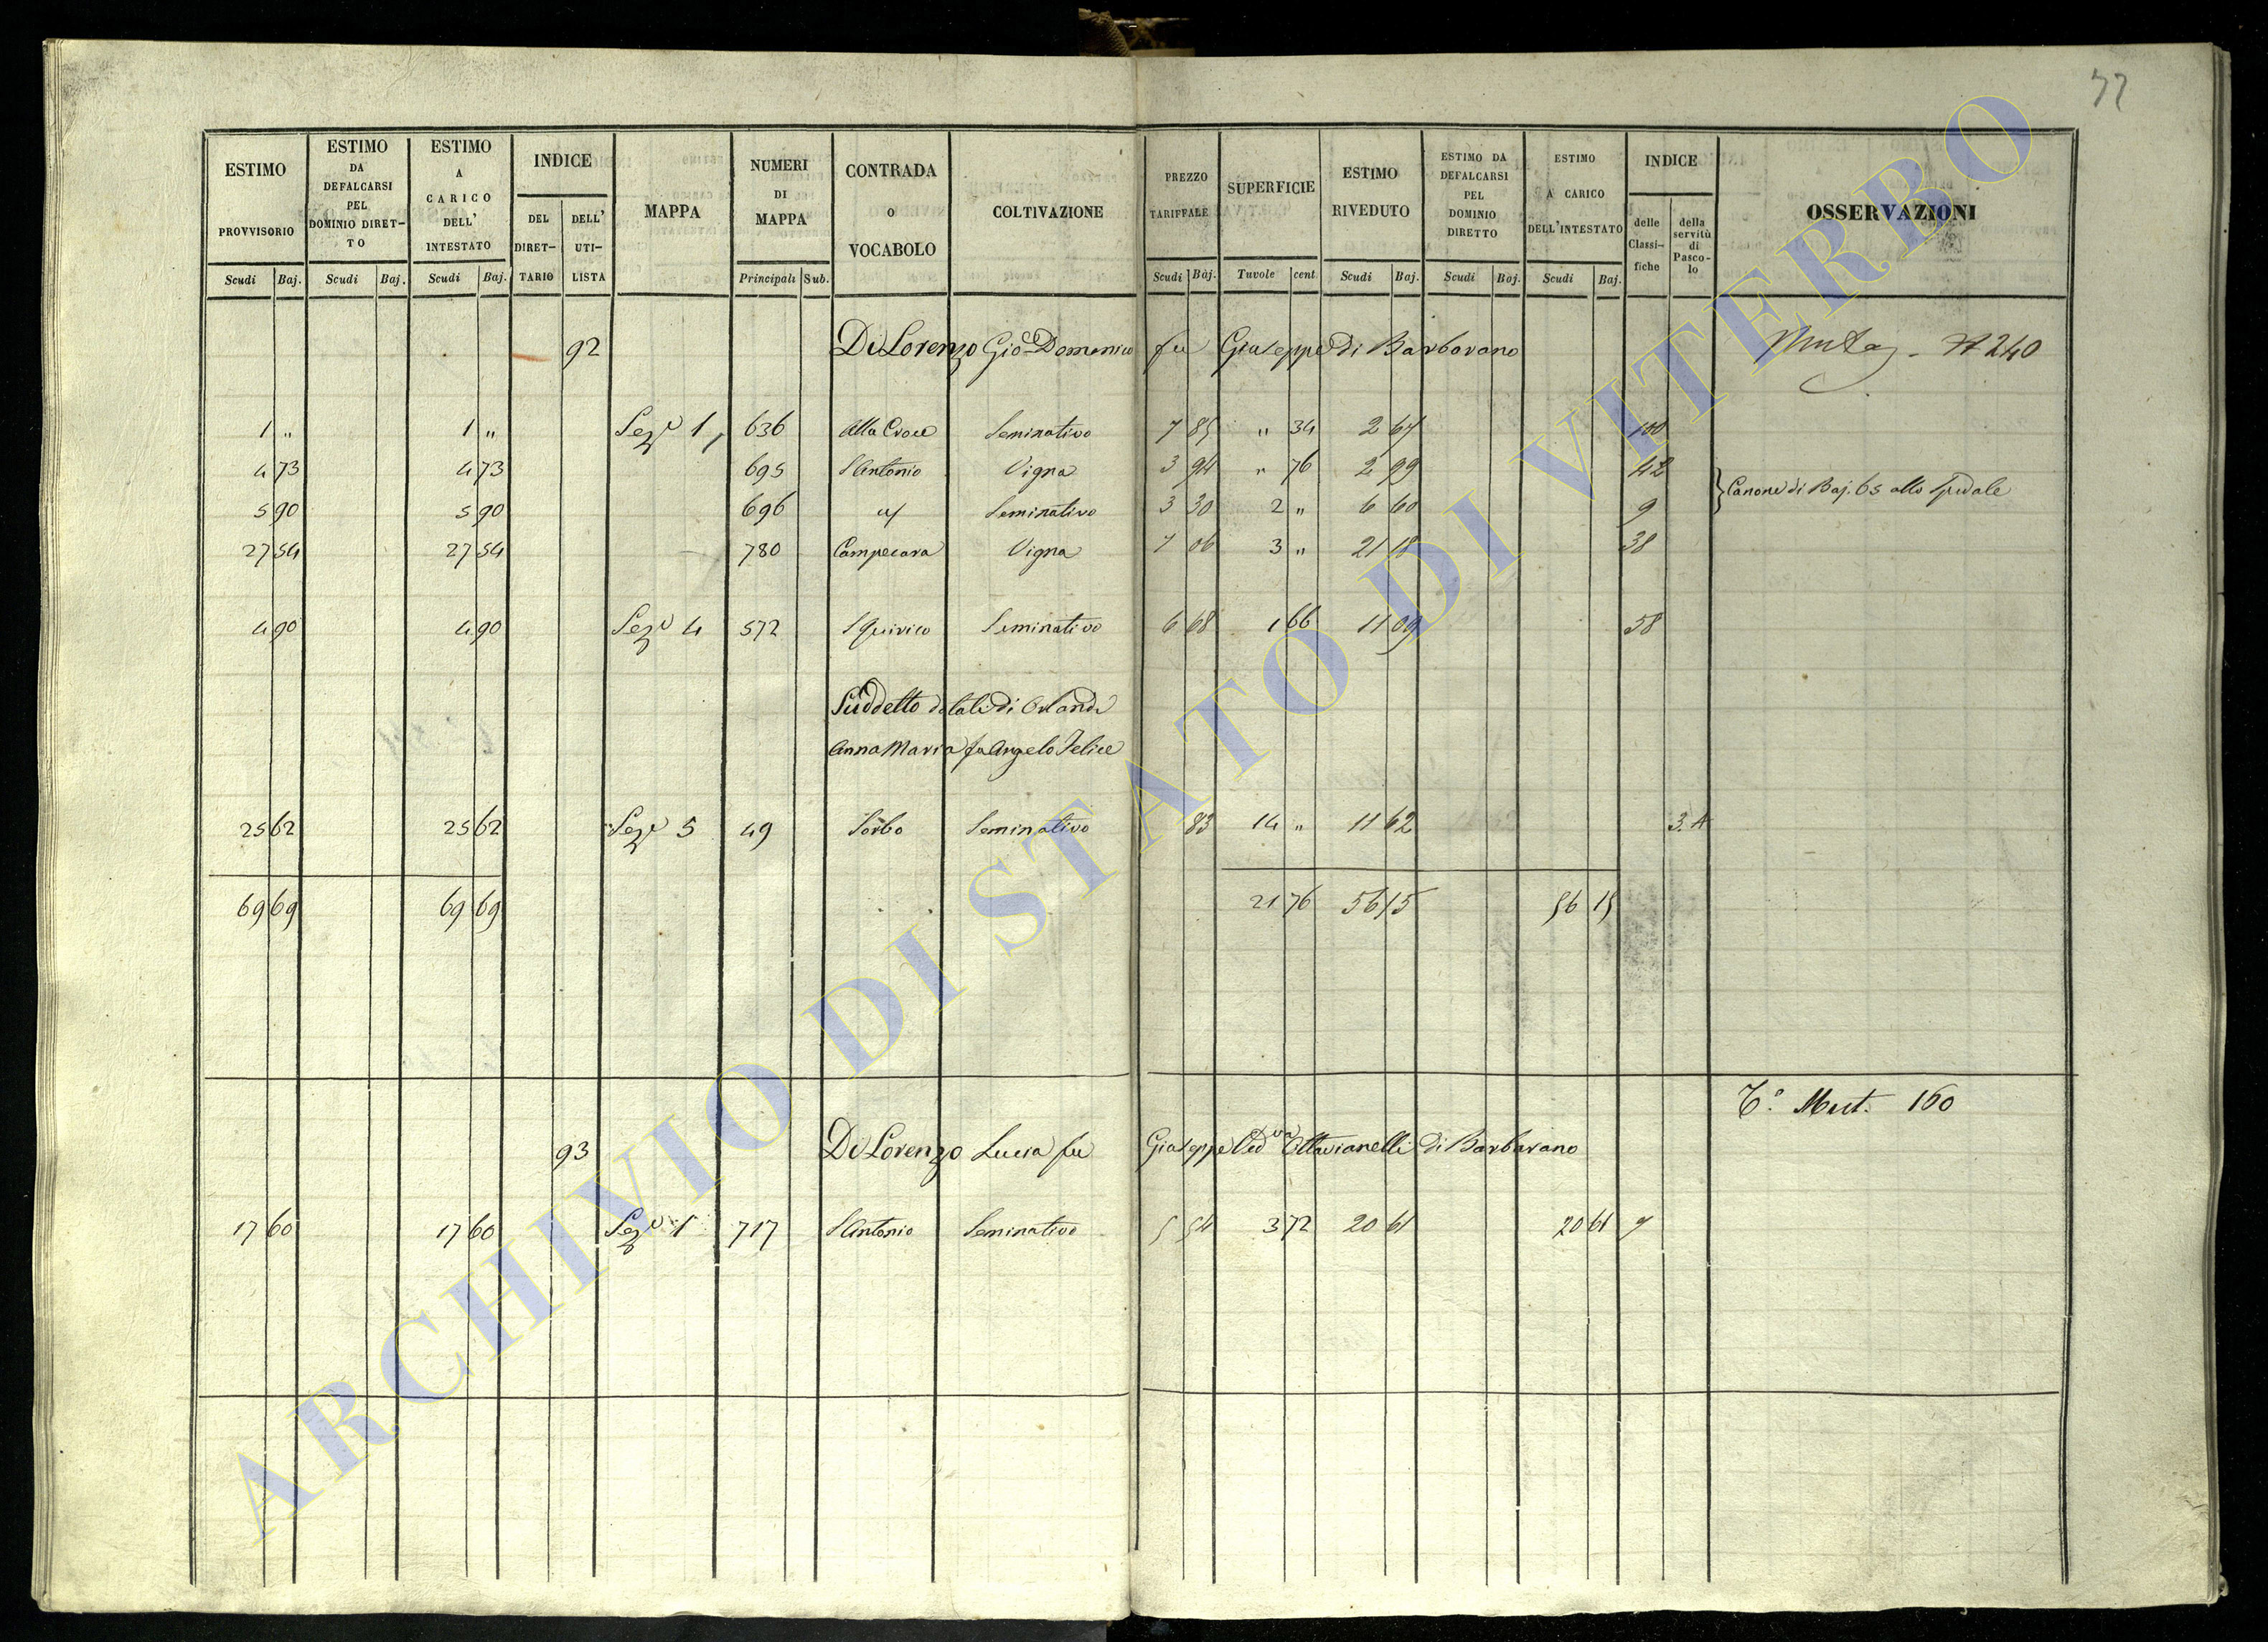 77
ESTIMO PROVVISORIO Scudi Baj.
ESTIMO DA DEFALCARSI PEL DOMINIO DIRET-TO Scudi Baj.
ESTIMO A CARICO DELL' INTESTATO Scudi Baj.
INDICE DEL DIRET-TARIO DELL' UTI-LISTA
MAPPA
NUMERI DI MAPPA Principali Sub.
CONTRADA O VOCABOLO
COLTIVAZIONE
PREZZO TARIFFALE Scudi Baj.
SUPERFICIE Tavole cent
ESTIMO RIVEDUTO Scudi Baj.
ESTIMO DA DEFALCARSI PEL DOMINIO DIRETTO Scudi Baj.
ESTIMO A CARICO DELL'INTESTATO Scudi Baj.
INDICE delle Classi-fiche della servitù di Pasco-lo
OSSERVAZIONI
92 Di Lorenzo Gio Domenico fu Giuseppe di Barbarano 240
1 " 1 " Sez.e 1, 636 Alla Croce Seminativo 7 85 " 34 2 67 100
4 73 4 73 695 S Antonio Vigna 3 94 " 76 2 99 42
Canone di Baj. 65 allo Spedale
5 90 5 90 696 Seminativo 3 30 2 " 6 60 9
27 54 27 54 780 Campecara Vigna 7 06 3 " 21 18 38
4 90 4 90 Sez.e 4 572 S Quirico Seminativo 6 68 1 66 11 09 58
Suddetto dotale di Orlandi
Anna Maria fu Angelo Felice
25 62 25 62 Sez.e 5 49 Sorbo Seminativo 83 14 " 11 62 3. A
69 69 69 69 21 76 56 15 56 15
T.o Mut. 160
93 Di Lorenzo Lucia fu Giuseppe Ved.va Ottavianelli di Barbarano
17 60 17 60 Sez.e 1 717 S Antonio Seminativo 5 54 3 72 20 61 20 61 7
ARCHIVIO DI STATO DI VITERBO